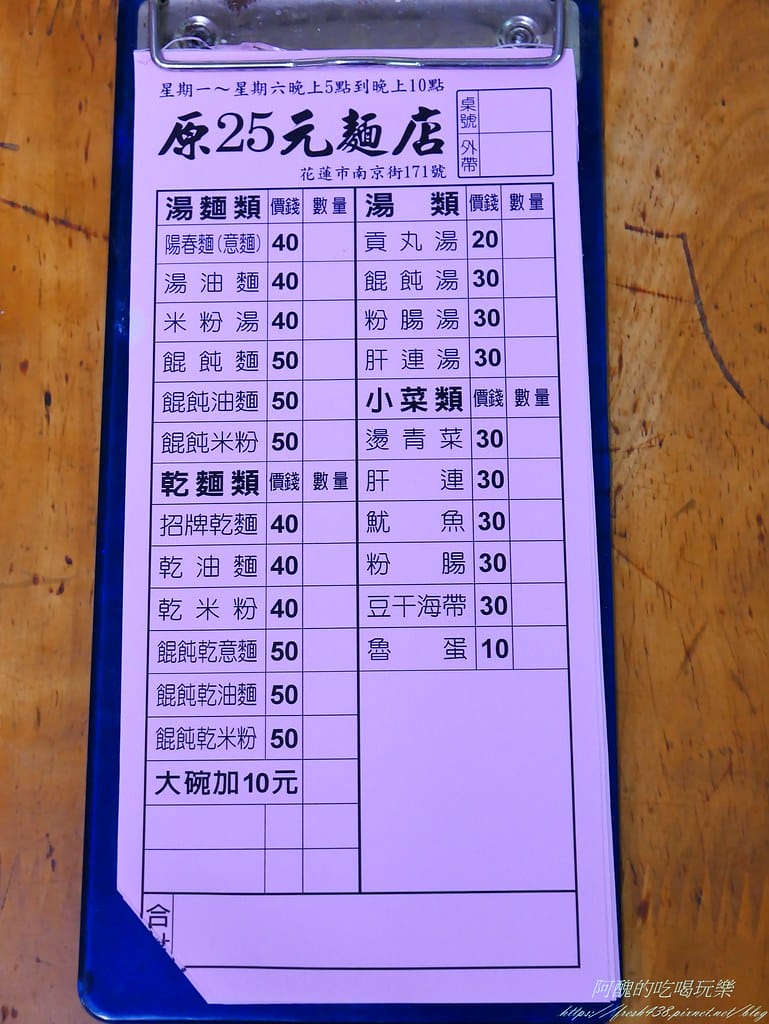 星期一～星期六晚上5點到晚上10點
原25元麵店
花蓮市南京街171號
桌號
外帶
湯麵類 價錢 數量
陽春麵(意麵) 40
湯油麵 40
米粉湯 40
餛飩麵 50
餛飩油麵 50
餛飩米粉 50
乾麵類 價錢 數量
招牌乾麵 40
乾油麵 40
乾米粉 40
餛飩乾意麵 50
餛飩乾油麵 50
餛飩乾米粉 50
大碗加10元
湯類 價錢 數量
貢丸湯 20
餛飩湯 30
粉腸湯 30
肝連湯 30
小菜類 價錢 數量
燙青菜 30
肝連 30
魷魚 30
粉腸 30
豆干海帶 30
魯蛋 10
合
阿醜的吃喝玩樂
https://fresh438.pixnet.net/blog